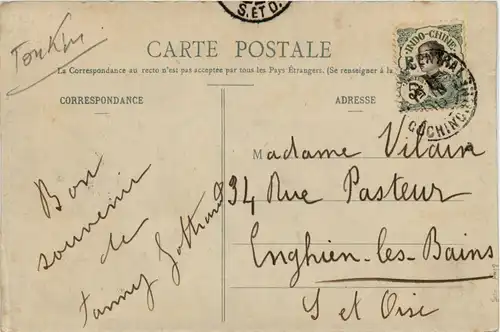 S. ET O.
Tonkin
CARTE POSTALE
La Correspondance au recto n'est pas acceptée par tous les Pays Étrangers. (Se renseigner à la
CORRESPONDANCE
ADRESSE
INDO-CHINE
CENTRAL
COCHINC
Bon
souvenir
de
Fanny
Madame Vilain
34 Rue Pasteur
Enghien-les-Bains
S et Oise